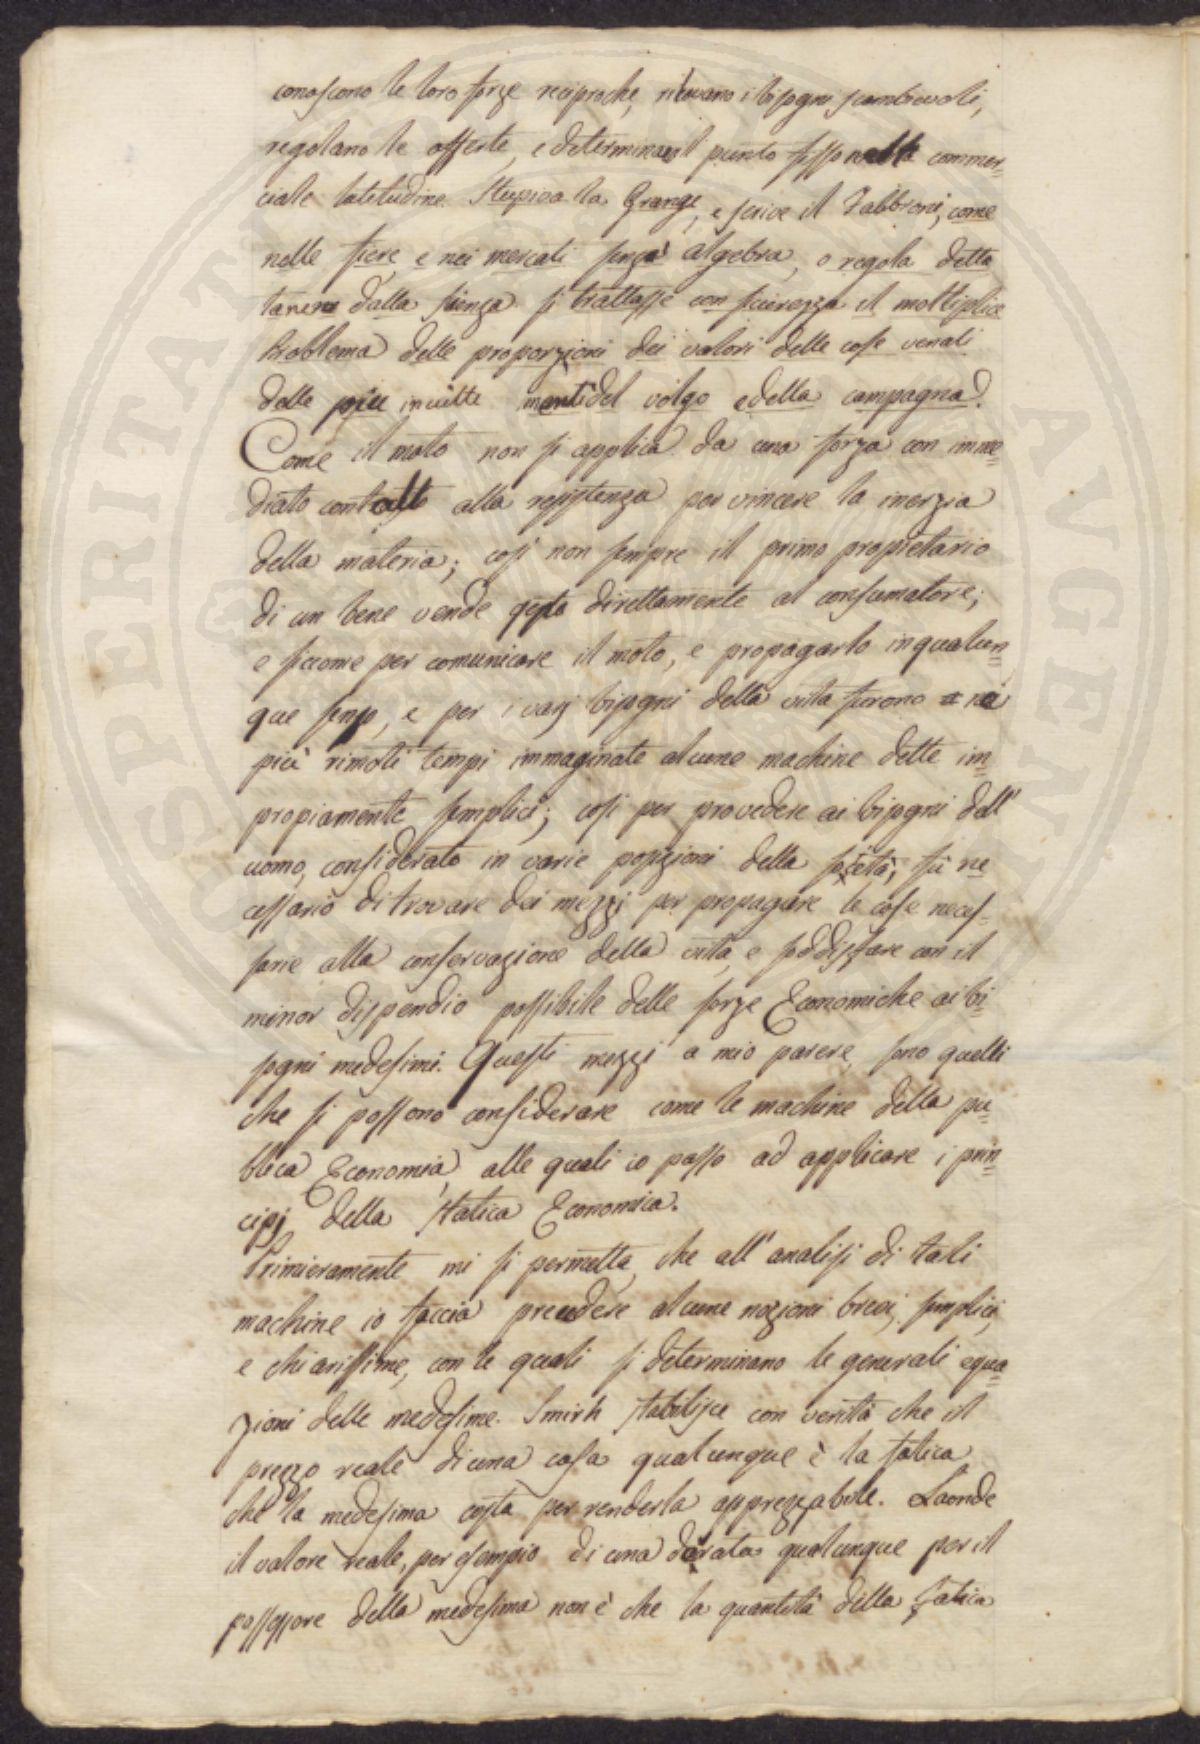 conoscono le loro forze reciproche, rilevano i bisogni scambievoli,
regolano le offerte, e determinano il punto fisso nella commer-
ciale latitudine. Stupiva la Grange, e scrive il Fabbroni, come
nelle fiere, e nei mercati senza algebra, o regola detta
tanere dalla scienza si trattasse con sicurezza il moltiplice
Problema delle proporzioni dei valori delle cose venali
dalle più inculte menti del volgo e della campagna.
Come il moto non si applica da una forza con imme-
diato contatto alla resistenza per vincere la inerzia
della materia; così non sempre il primo propietario
di un bene vende questo direttamente al consumatore;
e siccome per comunicare il moto, e propagarlo in qualun-
que senso, e per i varj bisogni della vita furono nei
più rimoti tempi immaginate alcune machine dette im-
propiamente semplici; così per provedere ai bisogni dell'
uomo, considerato in varie posizioni della società, fù ne
cessario di trovare dei mezzi per propagare le cose neces-
sarie alla conservazione della vita, e soddisfare con il
minor dispendio possibile delle forze Economiche ai bi-
sogni medesimi. Questi mezzi a mio parere, sono quelli
che si possono considerare come le machine della pu-
blica Economia, alle quali io passo ad applicare i prin-
cipj della Statica Economica.
Primieramente mi si permetta, che all'analisi di tali
machine io faccia precedere alcune nozioni brevi, semplici,
e chiarissime, con le quali si determinano le generali equa-
zioni delle medesime. Smirh stabilisce con verità che il
prezzo reale di una cosa qualunque è la fatica
che la medesima costa per renderla apprezzabile. Laonde
il valore reale, per esempio di una derata qualunque per il
possessore della medesima non è che la quantità della fatica